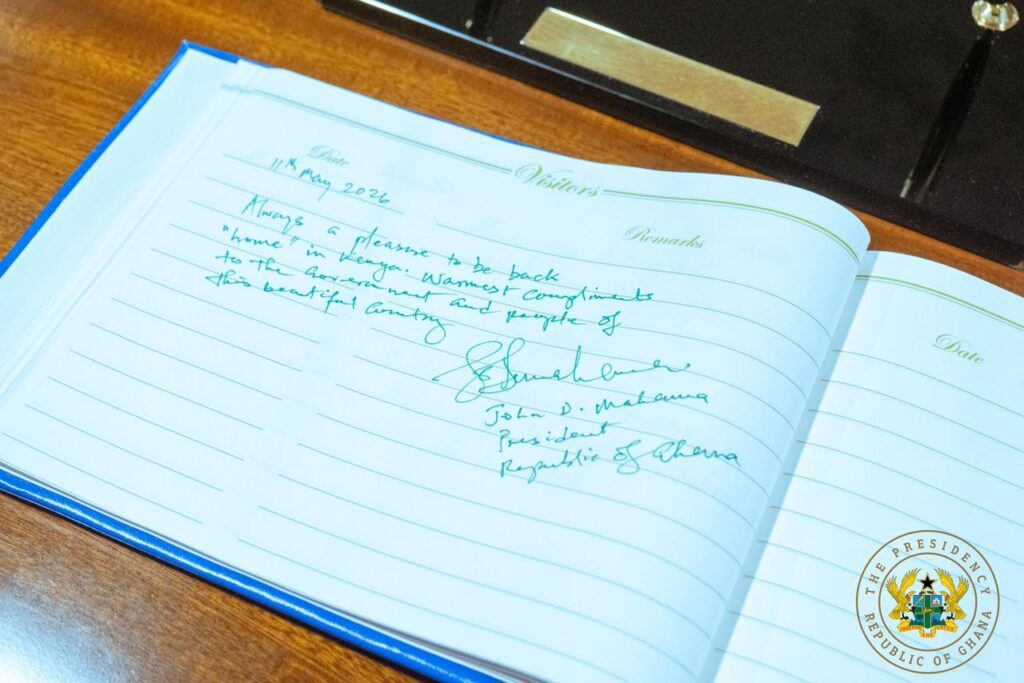 Visitors
Date
Remarks
11th May 2026
Always a pleasure to be back
"home" in Kenya. Warmest compliments
to the Government and people of
this beautiful Country
John D. Mahama
President
Republic of Ghana
Date
THE PRESIDENCY
REPUBLIC OF GHANA